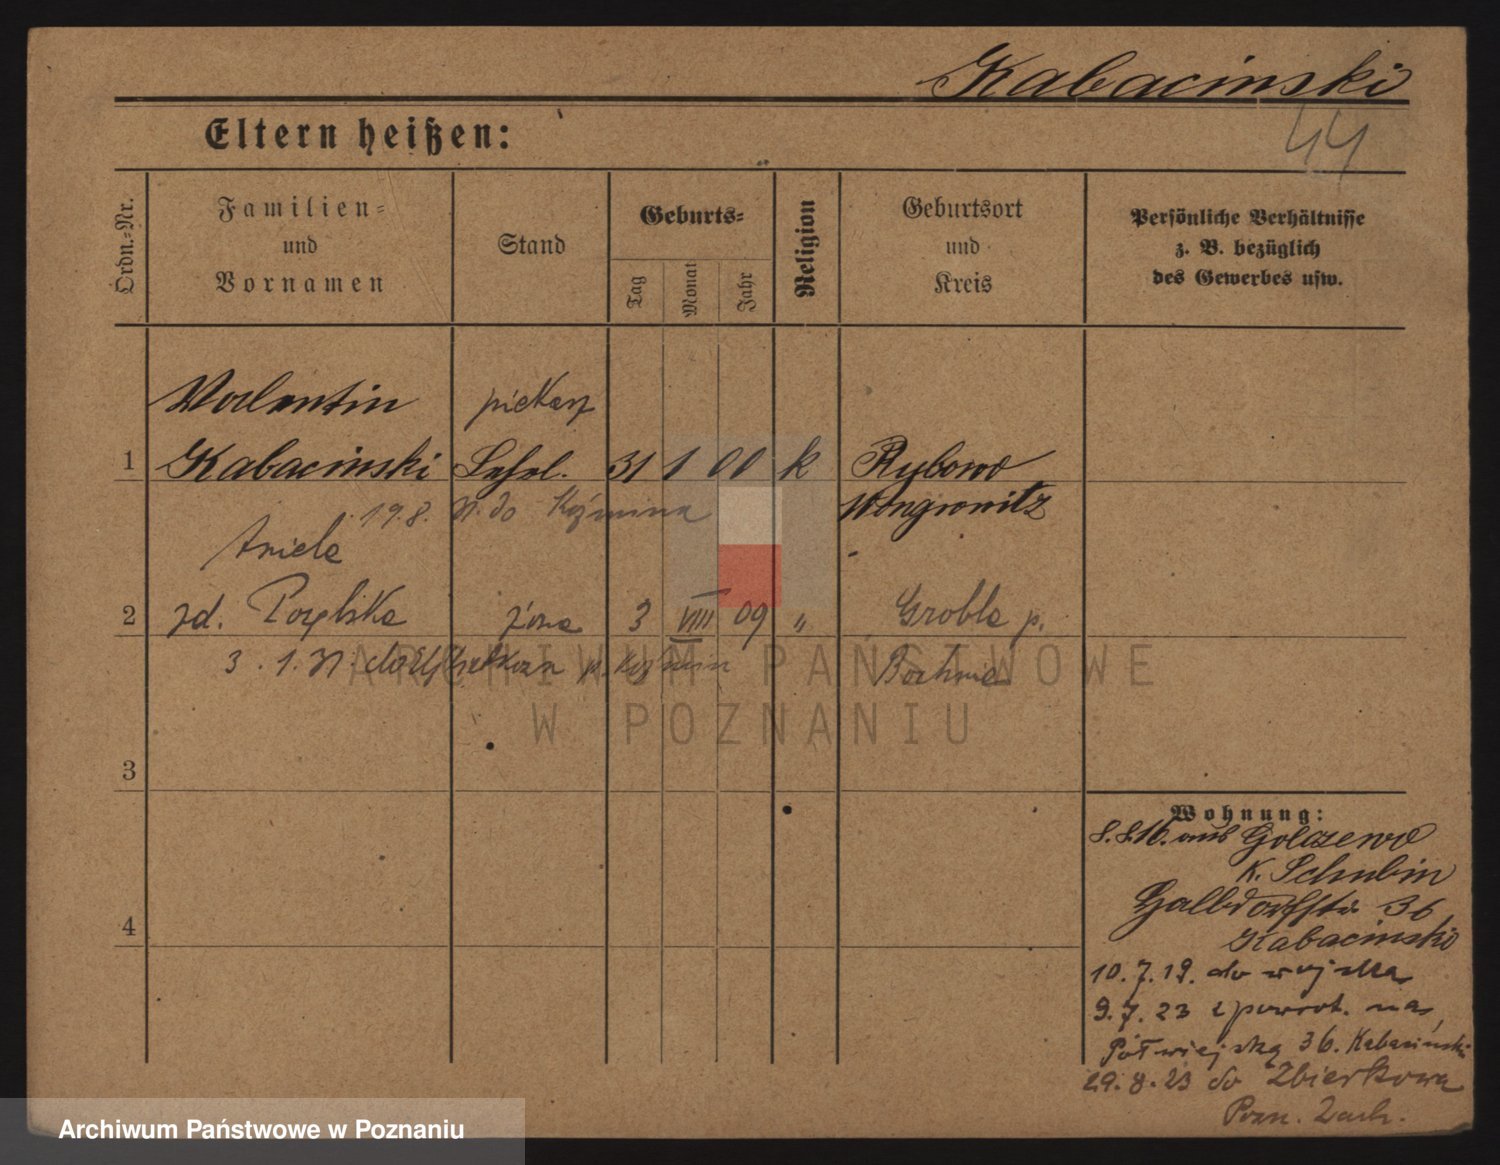 Kabacinski
44
Eltern heißen:
Ordn.=Nr.
Familien=
und
Vornamen
Stand
Geburts=
Tag
Monat
Jahr
Religion
Geburtsort
und
Kreis
Persönliche Verhältnisse
z. B. bezüglich
des Gewerbes usw.
Valentin
piekarz
1 Kabacinski 31 1 00 k Rybowo
19.8. do Koźmina Wongrowitz
Aniela
2 zd. żona 3 VIII 09 " Grobla p.
3. 1. 31 do p. Koźmin Bochnia
3
4
Wohnung:
8.8.16. aus Golczewo
K. Schubin
Halbdorfstr 36
Kabacinski
10.7.19. do wojska
9.7.23 z powrot. na
Półwiejską 36. Kabaciński
29.8.23 do Zbierkowa
Pozn. Zach.
ARCHIWUM PAŃSTWOWE
W POZNANIU
Archiwum Państwowe w Poznaniu